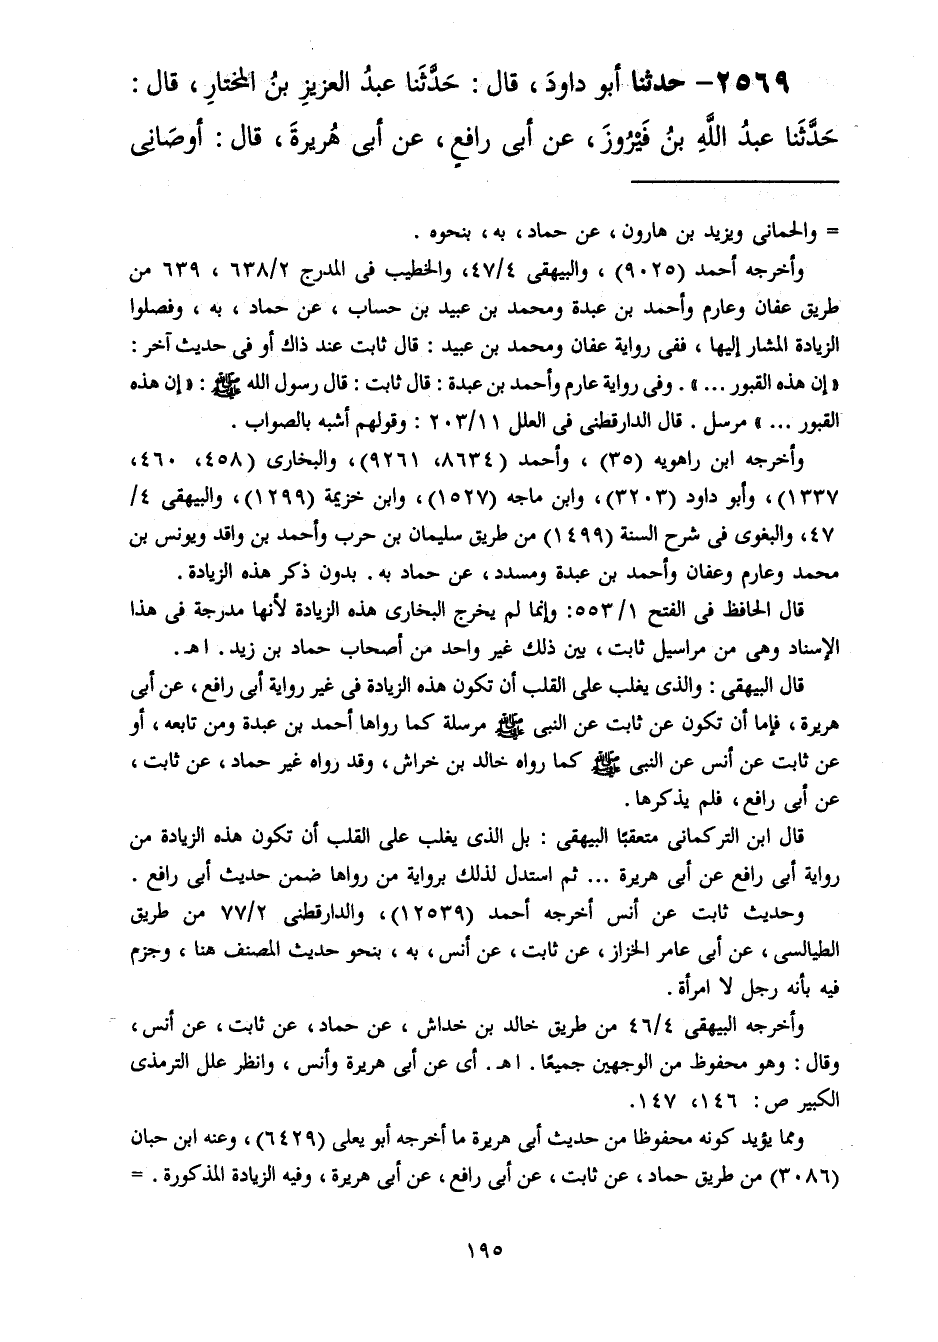 ٢٥٦٩- حدثنا أبو داودَ ، قال : حَدَّثَنا عبدُ العزيزِ بنُ المختارِ ، قال :
حَدَّثَنا عبدُ اللَّهِ بنُ فَيْرُوزَ ، عن أبى رافعٍ ، عن أبى هُريرةَ ، قال : أوصَانِى
= والحمانى ويزيد بن هارون ، عن حماد ، به ، بنحوه .
وأخرجه أحمد (٩٠٢٥) ، والبيهقى ٤٧/٤، والخطيب فى المدرج ٦٣٨/٢ ، ٦٣٩ من
طريق عفان وعارم وأحمد بن عبدة ومحمد بن عبيد بن حساب ، عن حماد ، به ، وفصلوا
الزيادة المشار إليها ، ففى رواية عفان ومحمد بن عبيد : قال ثابت عند ذاك أو فى حديث آخر :
« إن هذه القبور ... » . وفى رواية عارم وأحمد بن عبدة : قال ثابت : قال رسول الله ﷺ : « إن هذه
القبور ... » مرسل . قال الدارقطنى فى العلل ٢٠٣/١١ : وقولهم أشبه بالصواب .
وأخرجه ابن راهويه (٣٥) ، وأحمد (٨٦٣٤، ٩٢٦١)، والبخارى (٤٥٨، ٤٦٠،
١٣٣٧)، وأبو داود (٣٢٠٣)، وابن ماجه (١٥٢٧)، وابن خزيمة (١٢٩٩)، والبيهقى ٤/
٤٧، والبغوى فى شرح السنة (١٤٩٩) من طريق سليمان بن حرب وأحمد بن واقد ويونس بن
محمد وعارم وعفان وأحمد بن عبدة ومسدد، عن حماد به. بدون ذكر هذه الزيادة.
قال الحافظ فى الفتح ٥٥٣/١: وإنما لم يخرج البخارى هذه الزيادة لأنها مدرجة فى هذا
الإسناد وهى من مراسيل ثابت، بين ذلك غير واحد من أصحاب حماد بن زيد. اهـ.
قال البيهقى : والذى يغلب على القلب أن تكون هذه الزيادة فى غير رواية أبى رافع، عن أبى
هريرة ، فإما أن تكون عن ثابت عن النبى ﷺ مرسلة كما رواها أحمد بن عبدة ومن تابعه ، أو
عن ثابت عن أنس عن النبى ﷺ كما رواه خالد بن خراش، وقد رواه غير حماد ، عن ثابت ،
عن أبى رافع، فلم يذكرها.
قال ابن التركمانى متعقبًا البيهقى : بل الذى يغلب على القلب أن تكون هذه الزيادة من
رواية أبى رافع عن أبى هريرة ... ثم استدل لذلك برواية من رواها ضمن حديث أبى رافع .
وحديث ثابت عن أنس أخرجه أحمد (١٢٥٣٩)، والدارقطنى ٧٧/٢ من طريق
الطيالسى ، عن أبى عامر الخزاز ، عن ثابت ، عن أنس ، به ، بنحو حديث المصنف هنا ، وجزم
فيه بأنه رجل لا امرأة .
وأخرجه البيهقى ٤٦/٤ من طريق خالد بن خداش ، عن حماد، عن ثابت، عن أنس،
وقال : وهو محفوظ من الوجهين جميعًا . اهـ . أى عن أبى هريرة وأنس ، وانظر علل الترمذى
الكبير ص: ١٤٦، ١٤٧.
ومما يؤيد كونه محفوظا من حديث أبى هريرة ما أخرجه أبو يعلى (٦٤٢٩) ، وعنه ابن حبان
(٣٠٨٦) من طريق حماد ، عن ثابت ، عن أبى رافع ، عن أبى هريرة ، وفيه الزيادة المذكورة . =
١٩٥